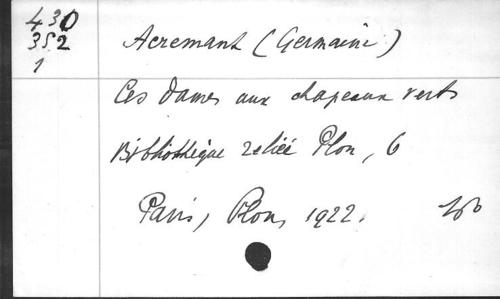 430
352
1
Acremant (Germaine)
Ces Dames aux chapeaux verts
Bibliothèque reliée Plon, 6
Paris, Plon, 1922.